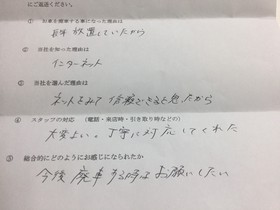 にご返送ください。
① お車を廃車する事になった理由は
長年放置していたから
② 当社を知った理由は
インターネット
③ 当社を選んだ理由は
ネットをみて信頼できると思たから
④ スタッフの対応 (電話・来店時・引き取り時などの)
大変よい。丁寧に対応してくれた
⑤ 総合的にどのようにお感じになられたか
今後廃車する時はお願いしたい